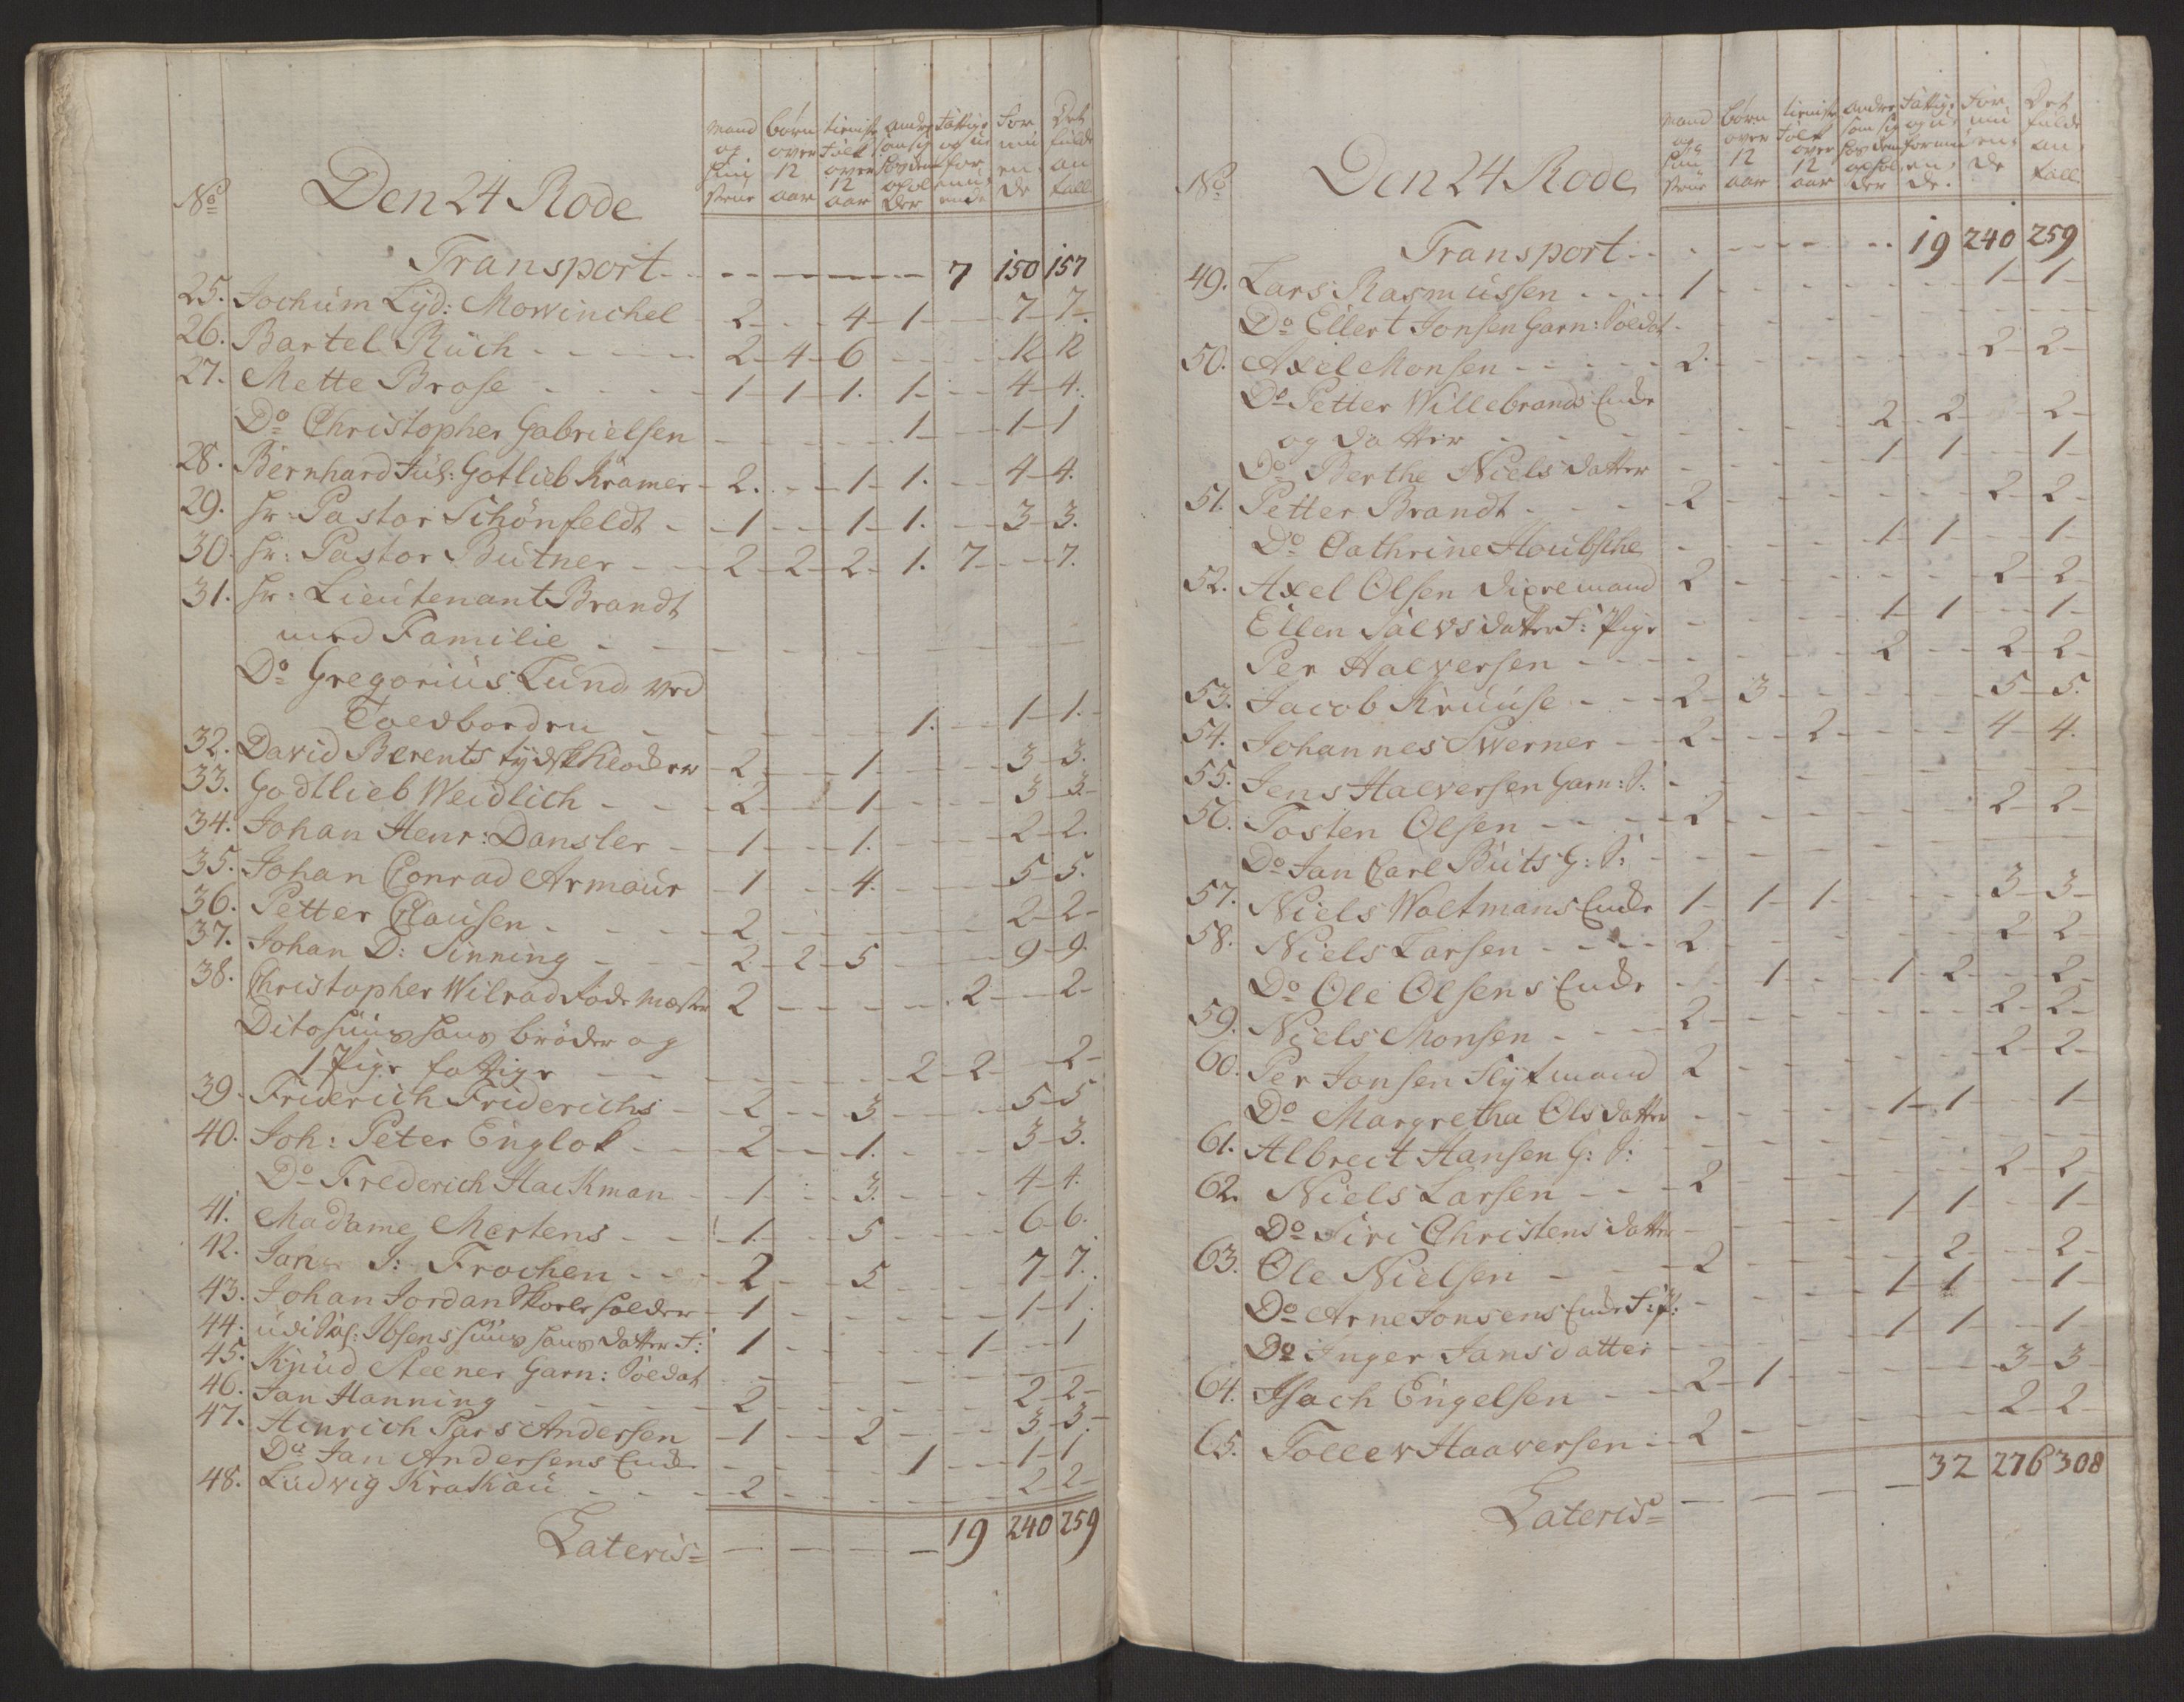 No
Den 24 Rode
Mand og Hustrue
børn over 12 aar
tieniste Folk over 12 aar
andre som sig hos dem opholder
Fattige og uformuende
Formuende
Det fulde Antall
Transport - - - 7 150 157
25. Jochum Lyd: Mowinchel - 2 - - 4 - 1 - - 7 - 7
26. Bartel Ruch - - - 2 - 4 - 6 - - - 12 12
27. Mette Brose - - - 1 - 1 - 1. 1 - - 4 - 4.
Do Christopher Gabrielsen - - - 1 - - 1 - 1
28. Bernhard Jul: Gotlieb Kramer - 2. - - 1 - 1. - - 4 - 4.
29. Hr. Pastor Schönfeldt - - 1 - - 1 - 1. - - 3 - 3.
30. Hr: Pastor Butner - - 2 - 2 - 2 - 1. 7 - - 7.
31. Hr: Lieutenant Brandt
med Familie - - -
Do Gregorius Lund ved
Toldboden - - - 1. - - 1 - 1. -
32. David Berents tydsk Kloder - 2 - - 1 - - - 3 - 3.
33. Godtlieb Weidlich - - - 2 - - 1 - - - 3 - 3 -
34. Johan Henr: Dansler - - 1 - - 1. - - - 2 - 2.
35. Johan Conrad Armaur - 1 - - 4. - - - 5 - 5.
36. Petter Clausen - - - 2 - - - - 2 - 2 -
37. Johan D: Sinning - - - 2 - 2 - 5 - - - 9 - 9.
38. Christopher Wilrad Rode Mester 2 - - - - 2 - - 2 -
Dito Huus hans brøder og
1 Pige fattige - - - 2 - 2 - 2 -
39. Friderich Friderichs - - 2 - - 3 - - - 5 - 5
40. Joh: Peter Englok - - 2 - - 1. - - - 3 - 3.
Do Frederich Hackman - - 1 - - 3. - - - 4 - 4.
41. Madame Mertens - - 1. - - 5 - - - 6 - 6.
42. Jan J: Frochen - - - 2 - - 5 - - - 7 - 7.
43. Johan Jordan Skoleholder - 1 - - - - 1 - 1.
44. udi Ibsens Huus hans datter F: 1 - - - - 1 - - 1
45. Knud Steener Garn: Soldat - - -
46. Jan Hanning - - - 2 - - - - 2 - 2 -
47. Hinrich Pars Andersen - 1 - - 2 - - - 3 - 3 -
Do Jan Andersens Enke - - - 1 - - 1 - 1
48. Ludvig Krakau - - - 2 - - - - 2 - 2 -
Lateris - - - - 19 240 259
No
Den 24 Rode
Mand og Hustrue
børn over 12 aar
tieniste Folk over 12 aar
andre som sig hos dem opholder
Fattige og uformuende.
Formuende
Det fulde Antall
Transport - - - 19 240 259
49. Lars Rasmussen - - - 1 - - - - 1 - 1 -
Do Ellert Jonsen Garn: Soldat -
50. Axel Monsen - - - 2. - - - - 2 - 2 -
Do Petter Willebrands Enke
og datter - - - 2 - 2 - 2 -
Do Berthe Niels datter - - - 1 1 - - 1 -
51. Petter Brandt - - - 2 - - - - 2 - 2 -
Do Cathrine Houbshe - - - 1 - 1 - - 1 -
52. Axel Olsen Dieremand 2 - - - - 2 - 2 -
Ellen Salvsdatter F: Pige - - - 1 - 1 - - 1 -
Per Halversen - - - 2 - - 2 - 2 -
53. Jacob Kruuse - - - 2 - 3 - - - 5 - 5.
54. Johannes Swerner - - 2 - - 2 - - - 4 - 4.
55. Jens Halversen Garn: S: -
56. Tosten Olsen - - - 2 - - - - 2 - 2 -
Do Jan Carl Buts G: S: -
57. Niels Woltmans Enke 1 - 1 - 1 - - - 3 - 3 -
58. Niels Larsen - - - 2. - - - - 2 - 2 -
Do Ole Olsens Enke - - 1 - - 1 - 2 - - 2 -
59. Niels Monsen - - - 2 - - - - 2 - 2 -
60. Per Jonsen Flytmand 2 - - - - 2 - 2 -
Do Margretha Olsdatter - - - 1 - 1 - - 1 -
61. Albrect Hansen G: S: -
62. Niels Larsen - - - 2 - - - - 2 - 2 -
Do Siri Christens datter - - - 1 1 - - 1 -
63. Ole Nielsen - - - 2 - - - 2 - - 2 -
Do Arne Jonsens Enke F: P: - - - 1 1 - - 1 -
Do Inger Jansdatter - - - 1 1 - - 1 -
64. Isach Engelsen - - 2 - 1 - - - 3 - 3 -
65. Tollev Haaversen - - 2 - - - - 2 - 2 -
Lateris - - - - 32 276 308